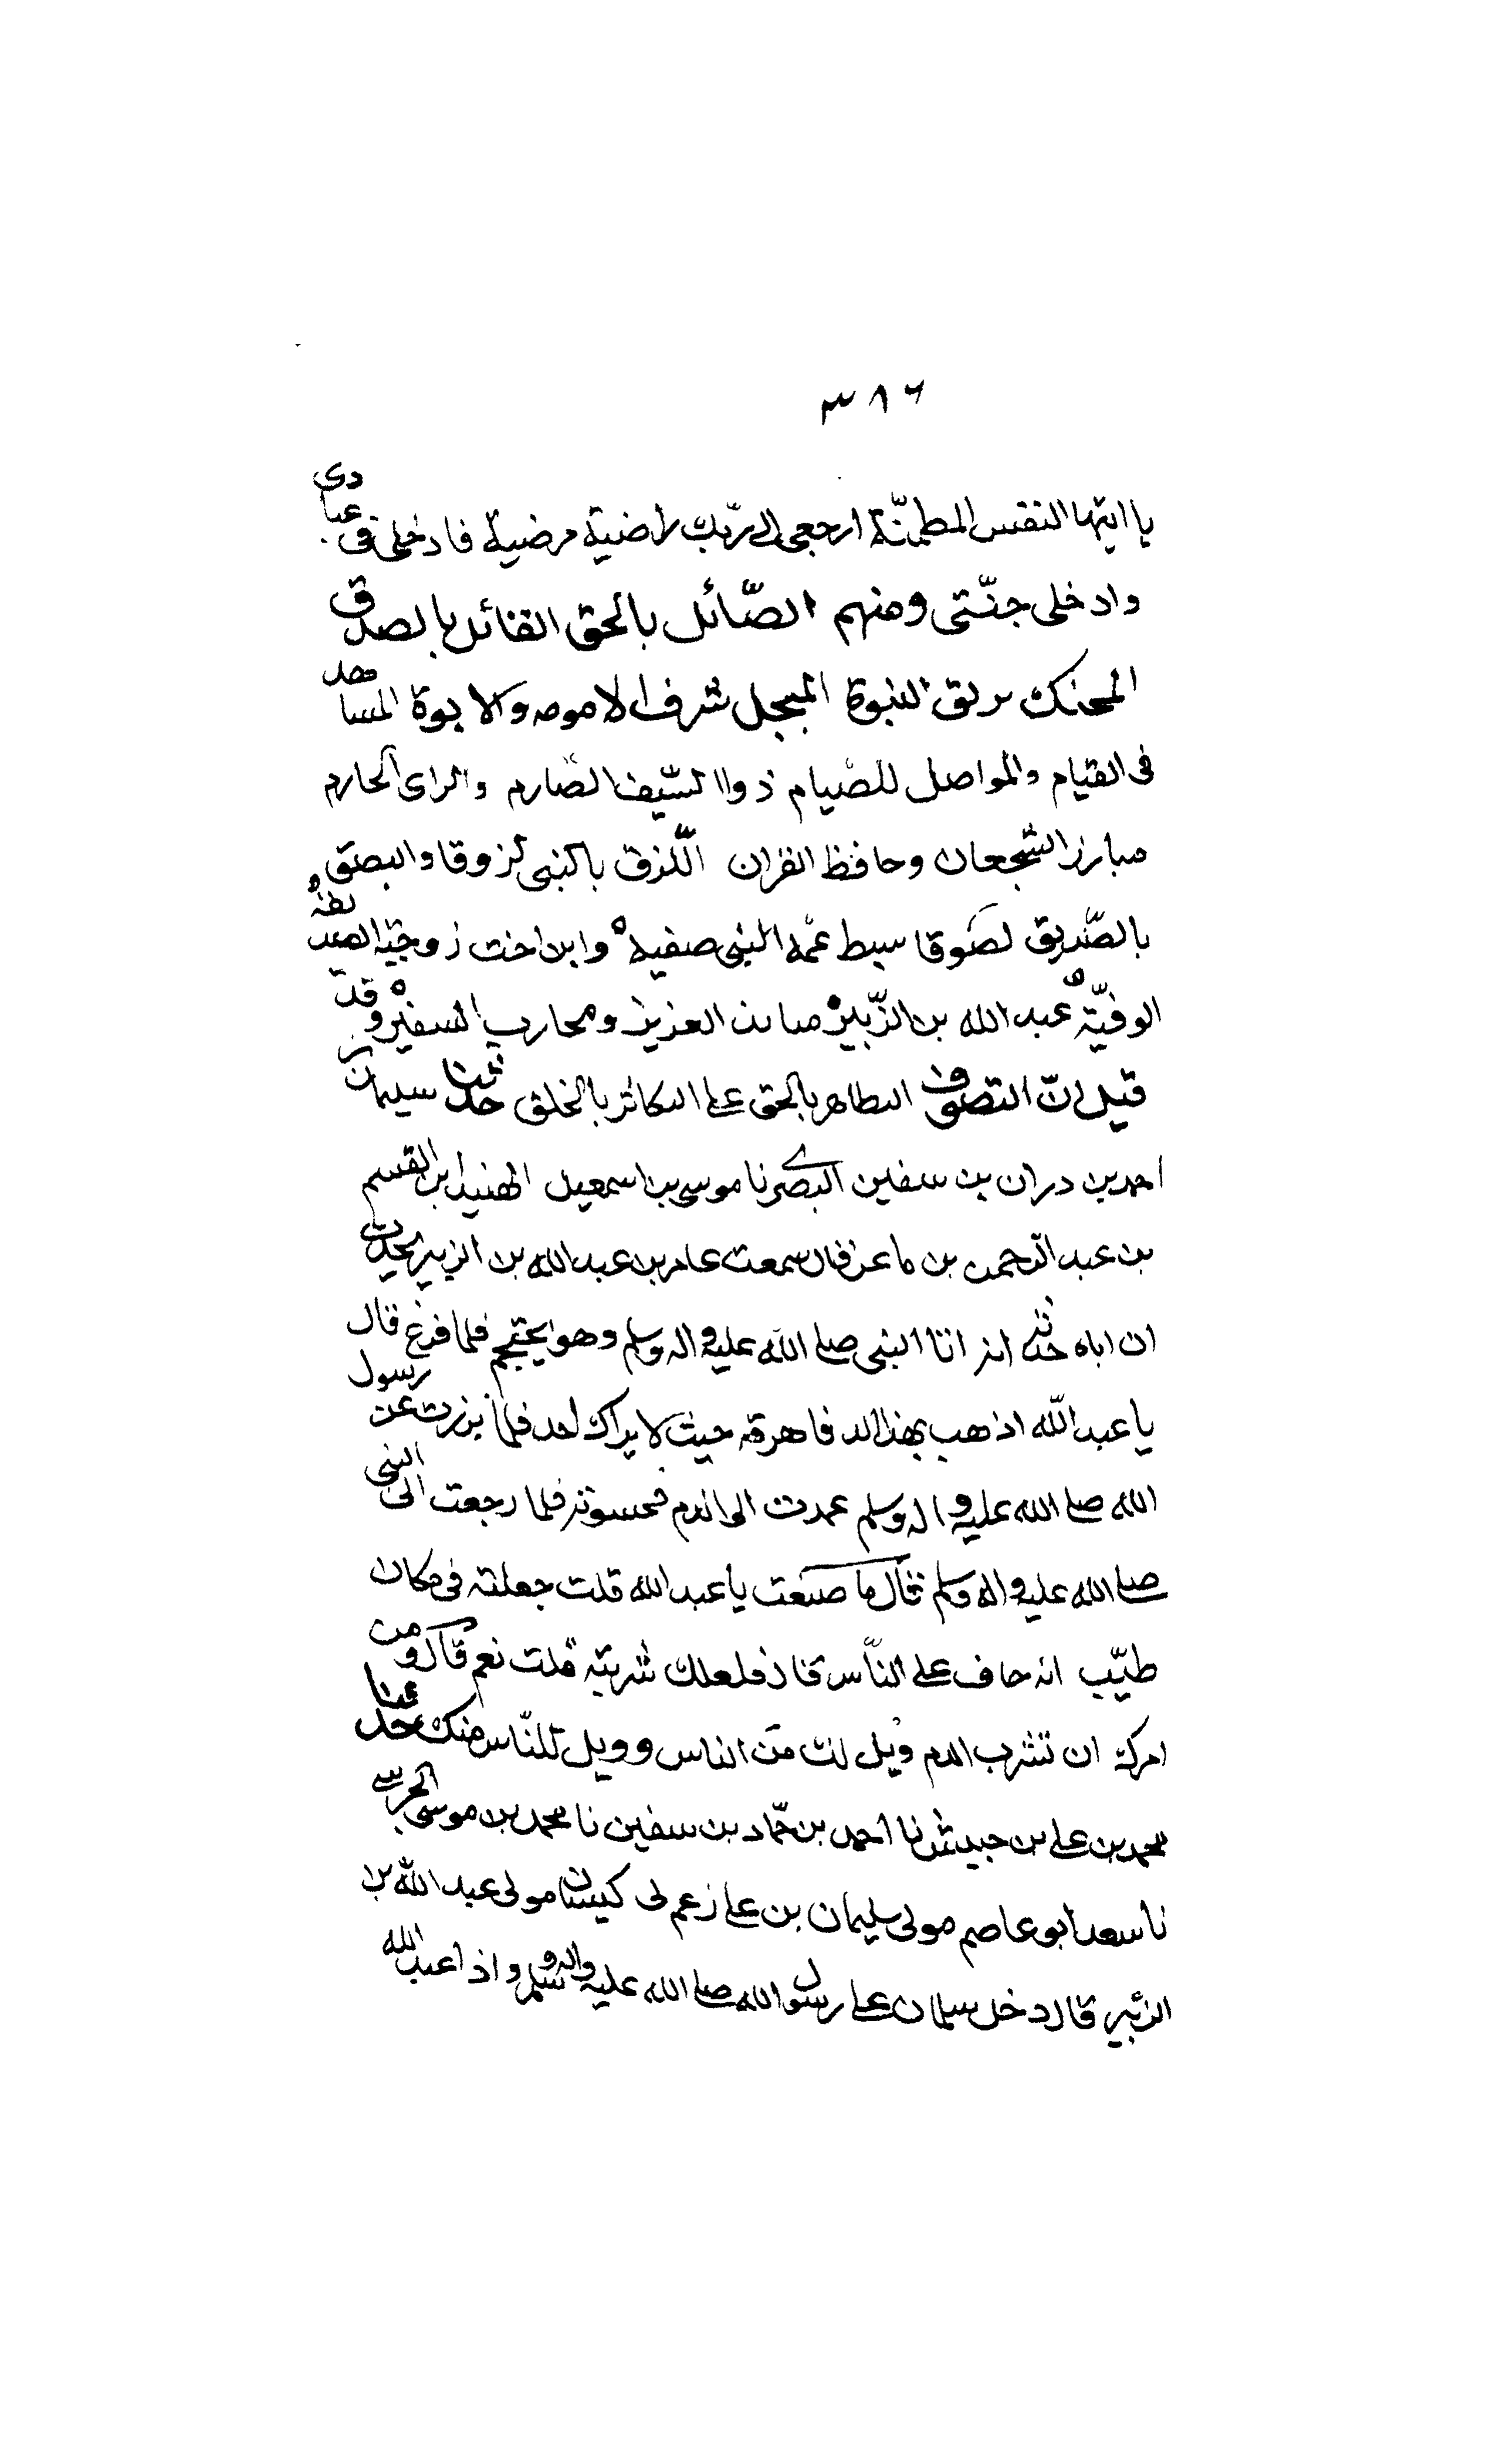 ٣٨٦
يا ايتها النفس المطمئنّة ارجعى الى ربّك راضية مرضية فادخلى فى عبادى
وادخلى جنّتى ومنهم الصّائل بالحق القائل بالصدق
المحنك بريق النبوة المبجل شرف الامومه والابوة المساهد
فى القيام والمواصل للصّيام ذو السّيف الصّارم والراى الحازم
مبارز الشجعان وحافظ القران اللّازق بالنبى لزوقا والبصق
بالصّديق لصوقا سبط عمّه النبى صفيه وابن اخت زوجته الصديقه
الوفيّة عبد الله بن الزّبير منابذ العزيز ومحارب السفير وقد
قيل انّ التصوف التطاهر بالحق على التكاثر بالخلق حدثنا سليمان بن
احمد بن دران بن سفين البصرى نا موسى بن اسمعيل الهنيد بن القسم
بن عبد الرّحمن بن ماعز قال سمعت عامر بن عبد الله بن الزبير يحدث
ان اباه حدثه انه اتا النبى صلى الله عليه واله وسلم وهو يحتجم فلما فرغ قال
يا عبد الله اذهب بهذا الدم فاهرقه حيث لا يراك احد فلما برزت عن رسول
الله صلى الله عليه واله وسلم عمدت الى الدم فحسوته فلما رجعت الى النبى
صلى الله عليه واله وسلم قال ما صنعت يا عبد الله قلت جعلته فى مكان
طيّب انه خاف على النّاس قال فلعلك شربته قلت نعم قال ومن
امرك ان تشرب الدم ويل لك من الناس وويل للنّاس منك حدثنا
محمد بن على بن حبيش نا احمد بن حمّاد بن سفين نا محمد بن موسى الحرسى
نا سعد ابو عاصم مولى سليمان بن على زعم لى كيسان مولى عبد الله بن
الزبير قال دخل سلمان على رسول الله صلى الله عليه واله وسلم واذا عبد الله